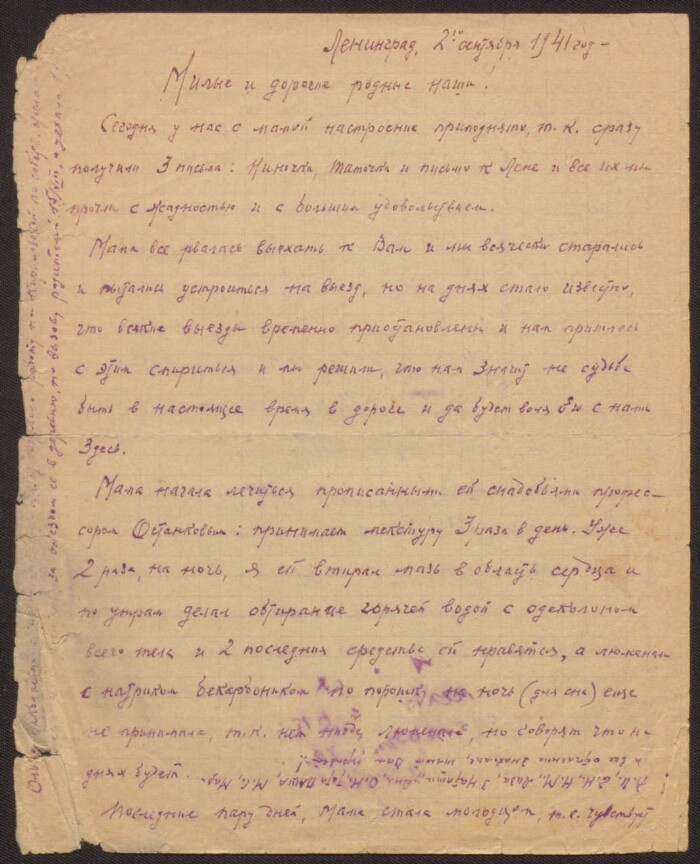 Ленинград, 2го сентября 1941 год –
Милые и дорогие родные наши!
Сегодня у нас с мамой настроение приподнято, т.к. сразу
получили 3 письма: Ниночки, Таточки и письмо к Лене и все их мы
прочли с жадностью и с большим удовольствием.
Мама все рвалась выехать к Вам и мы всячески старались
и пытались устроиться на выезд, но на днях стало известно,
что всякие выезды временно приостановлены и нам пришлось
с этим смириться и мы решили, что нам значит не судьба
быть в настоящее время в дороге и да будет воля Его с нами
здесь.
Мама начала лечиться прописанным ей снадобьями профес-
сором Останковым: принимает микстуру 3 раза в день. Уже
2 раза, на ночь, я ей втирал мазь в область сердца и
по утрам делал обтирание горячей водой с одеколоном
всего тела и 2 последния средства ей нравятся, а люминал
с натриком бекарбоником по порошку на ночь (для сна) еще
не принимала, т.к. нет нигде люминала, но говорят что на
днях будет.
Последние пару дней, мама стала молодцом, т.е. чувствует
за отъездом ее в деревню, по вызову родителей